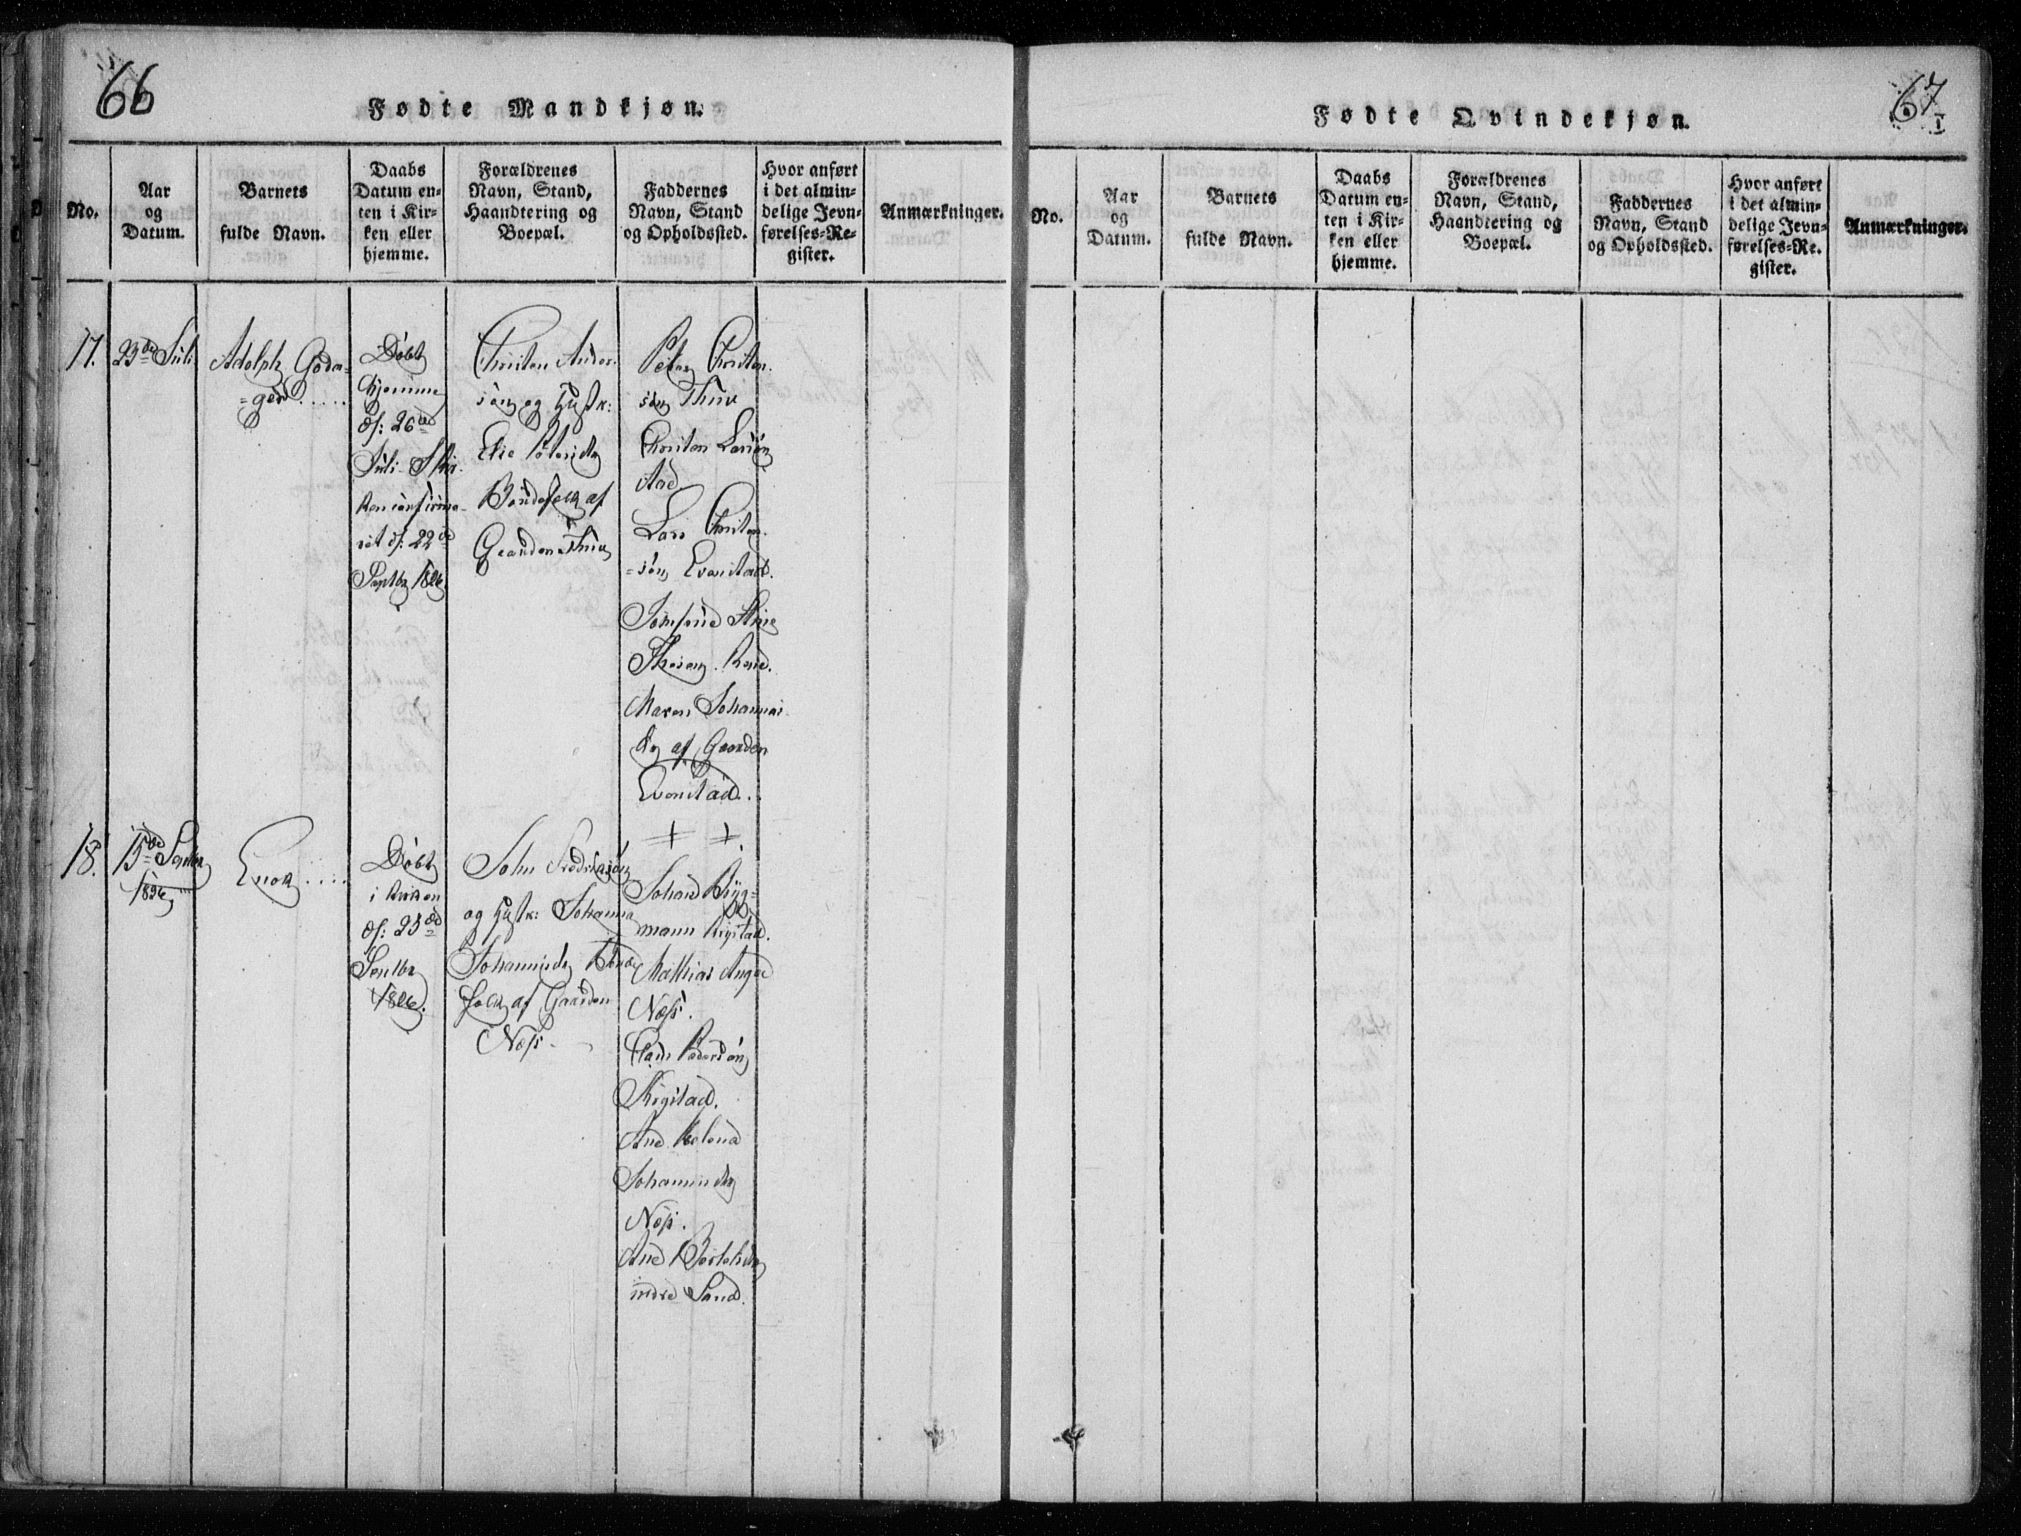 66
Fødte Mandkjøn.
No.
Aar
og
Datum.
Barnets
fulde Navn.
Daabs
Datum en-
ten i Kir-
ken eller
hjemme.
Forældrenes
Navn, Stand,
Haandtering og
Boepæl.
Faddernes
Navn, Stand
og Opholdssted.
Hvor anført
i det almin-
delige Jevn-
førelses-Re-
gister.
Anmærkninger.
17.
23de Juli
Adolph
Døbt
hjemme
d: 26de
Juli
d: 22de
Septbr 1826
Christen Ander-
søn og Hustr:
Elie
Bøndefolk af
Gaarden Thuv
Peter Christen-
søn Thuv
Christen Larsøn
Aad
Lars Christen-
=søn Evenstad.
Jomfrue Stine
Maren Johannes
dr af Gaarden
Evenstad.
18.
15de Septbr
1826
Enok ....
Døbt
i Kirken
d: 25de
Septbr
1826.
John Fredriksøn
og Hustr: Johanna
Johannisdr Bønde
folk af Gaarden
Næss
+ +
Johand Bryg=
mann Rigstad.
Mathias
Næss.
Clads Pedersøn
Rigstad.
Ane Helena
Johannisdr
Næss.
Ane
indre Sand.
67
I
Fødte Qvindekjøn.
No.
Aar
og
Datum.
Barnets
fulde Navn.
Daabs
Datum en-
ten i Kir-
ken eller
hjemme.
Forældrenes
Navn, Stand,
Haandtering og
Boepæl.
Faddernes
Navn, Stand
og Opholdssted.
Hvor anført
i det almin-
delige Jevn-
førelses-Re-
gister.
Anmærkninger.